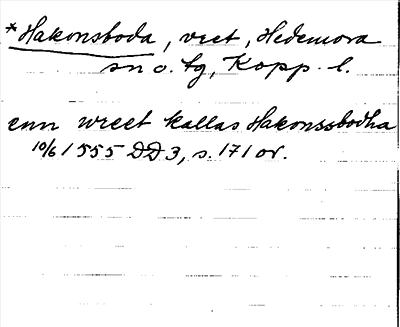 *Hakonsboda, vret, Hedemora
sn o. tg, Kopp. l.
enn wreet kallas Hakonssbodha
10/6 1555 DD3, s. 171 or.